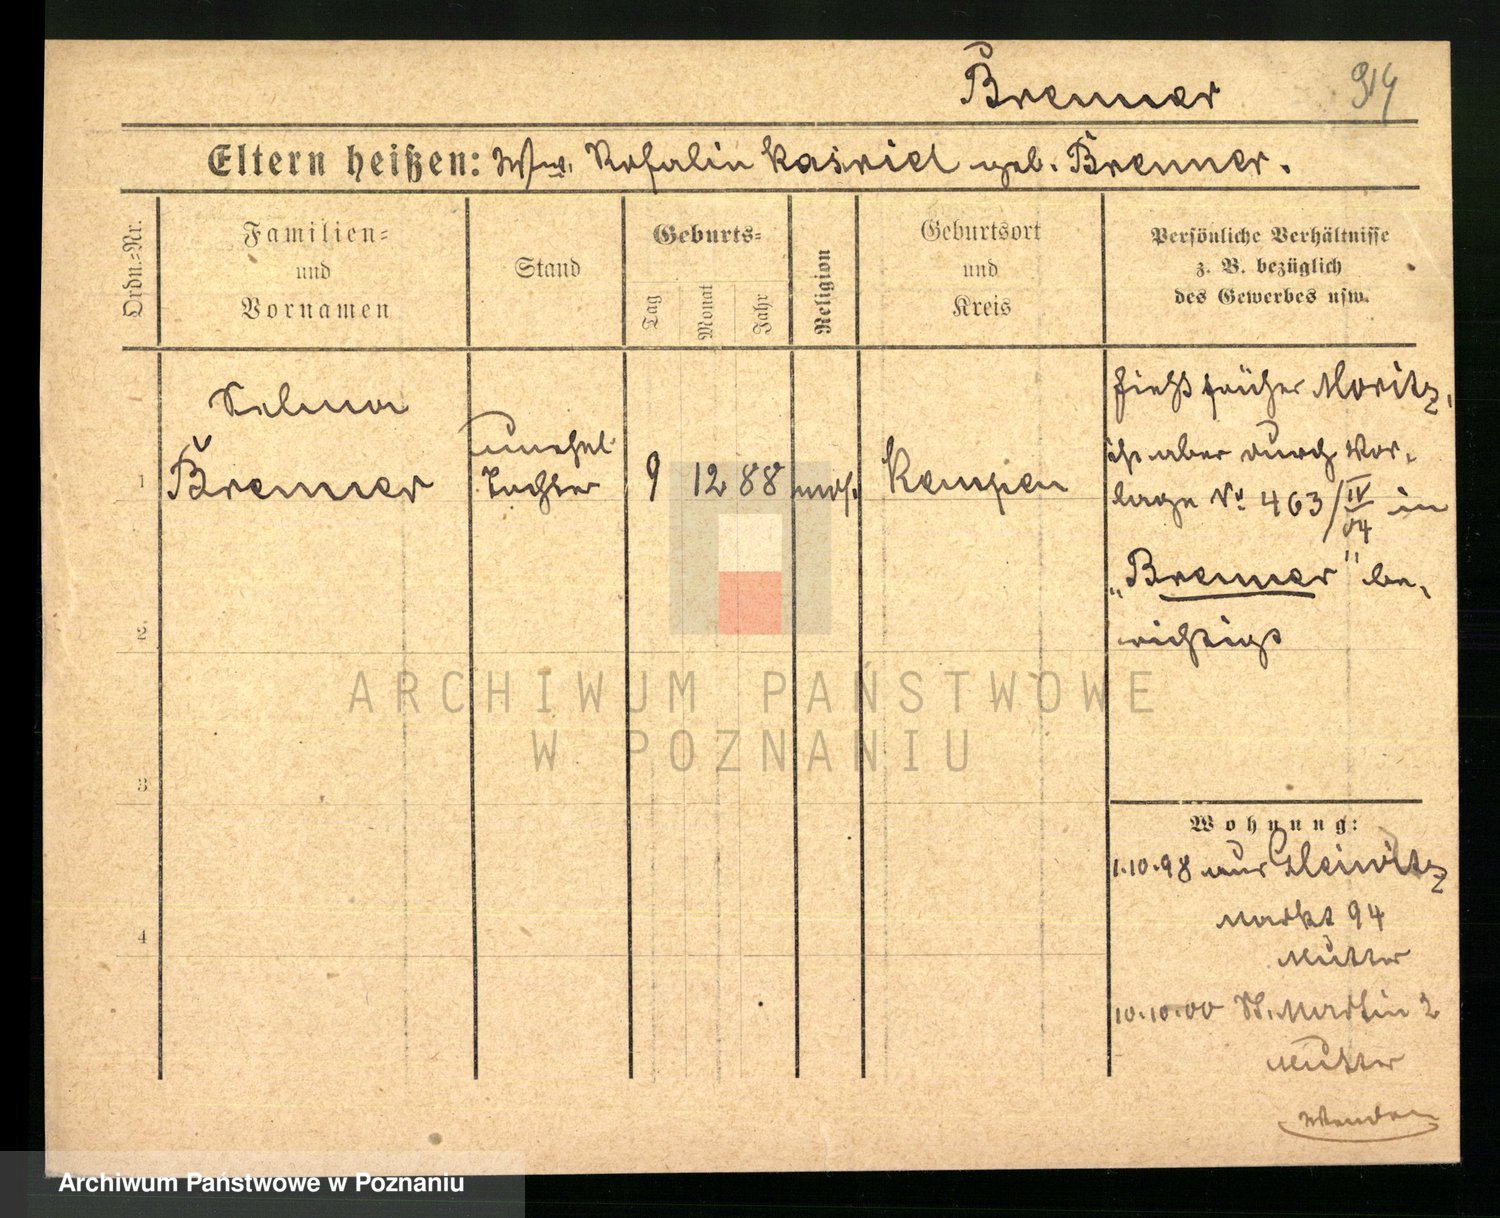 Brenner 914
Eltern heißen: Ww. Rosalin Kasriel geb. Brenner.
Ordn.-Nr.
Familien-
und
Vornamen
Stand
Geburts-
Tag
Monat
Jahr
Religion
Geburtsort
und
Kreis
Persönliche Verhältnisse
z. B. bezüglich
des Gewerbes usw.
1
Selma
Brenner
unehel.
Tochter
9 12 88
mos.
Kempen
hieß früher Moritz,
ist aber durch Vor-
lage No 463/IV 04 in
„Brenner" be-
richtigt
2
3
4
Wohnung:
1.10.98 aus Gleiwitz
Markt 94
Mutter
10.10.00 St. Martin 2
Mutter
Wenden
ARCHIWUM PAŃSTWOWE
W POZNANIU
Archiwum Państwowe w Poznaniu